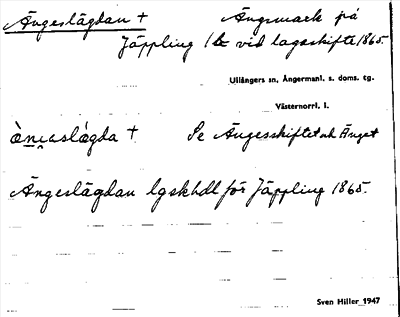 Ängeslägdan † Ängsmark på
Jäppling 1 vid lagaskifte 1865.
Ullångers sn, Ångermanl. s. doms. tg.
Västernorrl. l.
† Se Ängesskiftet och Änget
Ängeslägdan lgskhdl för Jäppling 1865.
Sven Hiller 1947